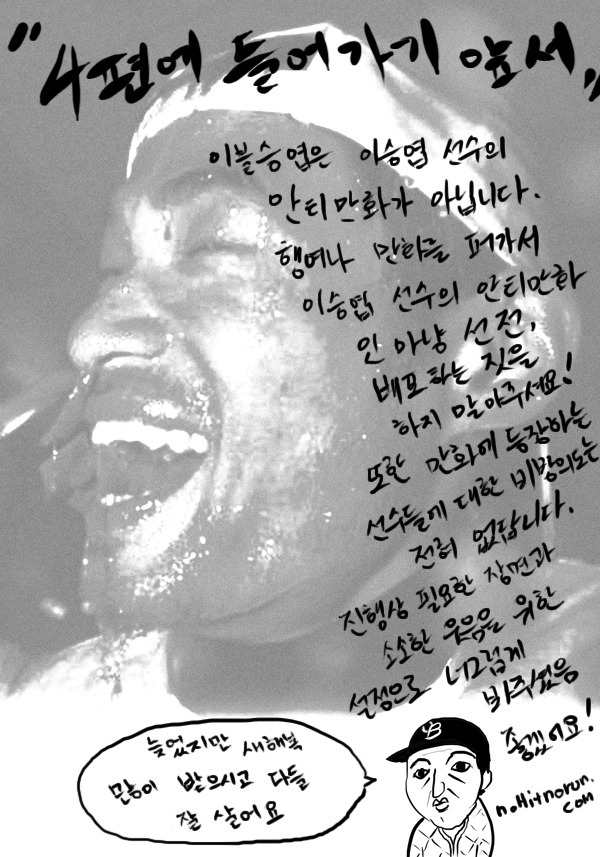 "4편에 들어가기 앞서"
이블승엽은 이승엽 선수의
안티만화가 아닙니다.
행여나 만화를 퍼가서
이승엽 선수의 안티만화
인 아냥 선전,
배포하는 짓을
하지 말아주세요!
또한 만화에 등장하는
선수들에 대한 비방의도는
전혀 없답니다.
진행상 필요한 장면과
소소한 웃음을 위한
설정으로 너그럽게
봐주셨음
좋겠어요!
늦었지만 새해복
많이 받으시고 다들
잘 살아요
YB
nohitnorun.
com